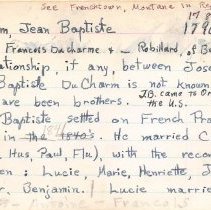 See Frenchtown, Montana in Re
178
m, Jean Baptiste 1790
Francois DuCharme & - Robillard, of B
ationship, if any, between Jose
Baptiste DuCharm is not known
ave been brothers. J.B. came to Or
the U.S.
Baptiste settled on French Pra
in the 1840's. He married C
, Hus, Paul, Flu), with the reco
en: Lucie, Marie, Henriette, J
r, Benjamin. Lucie married